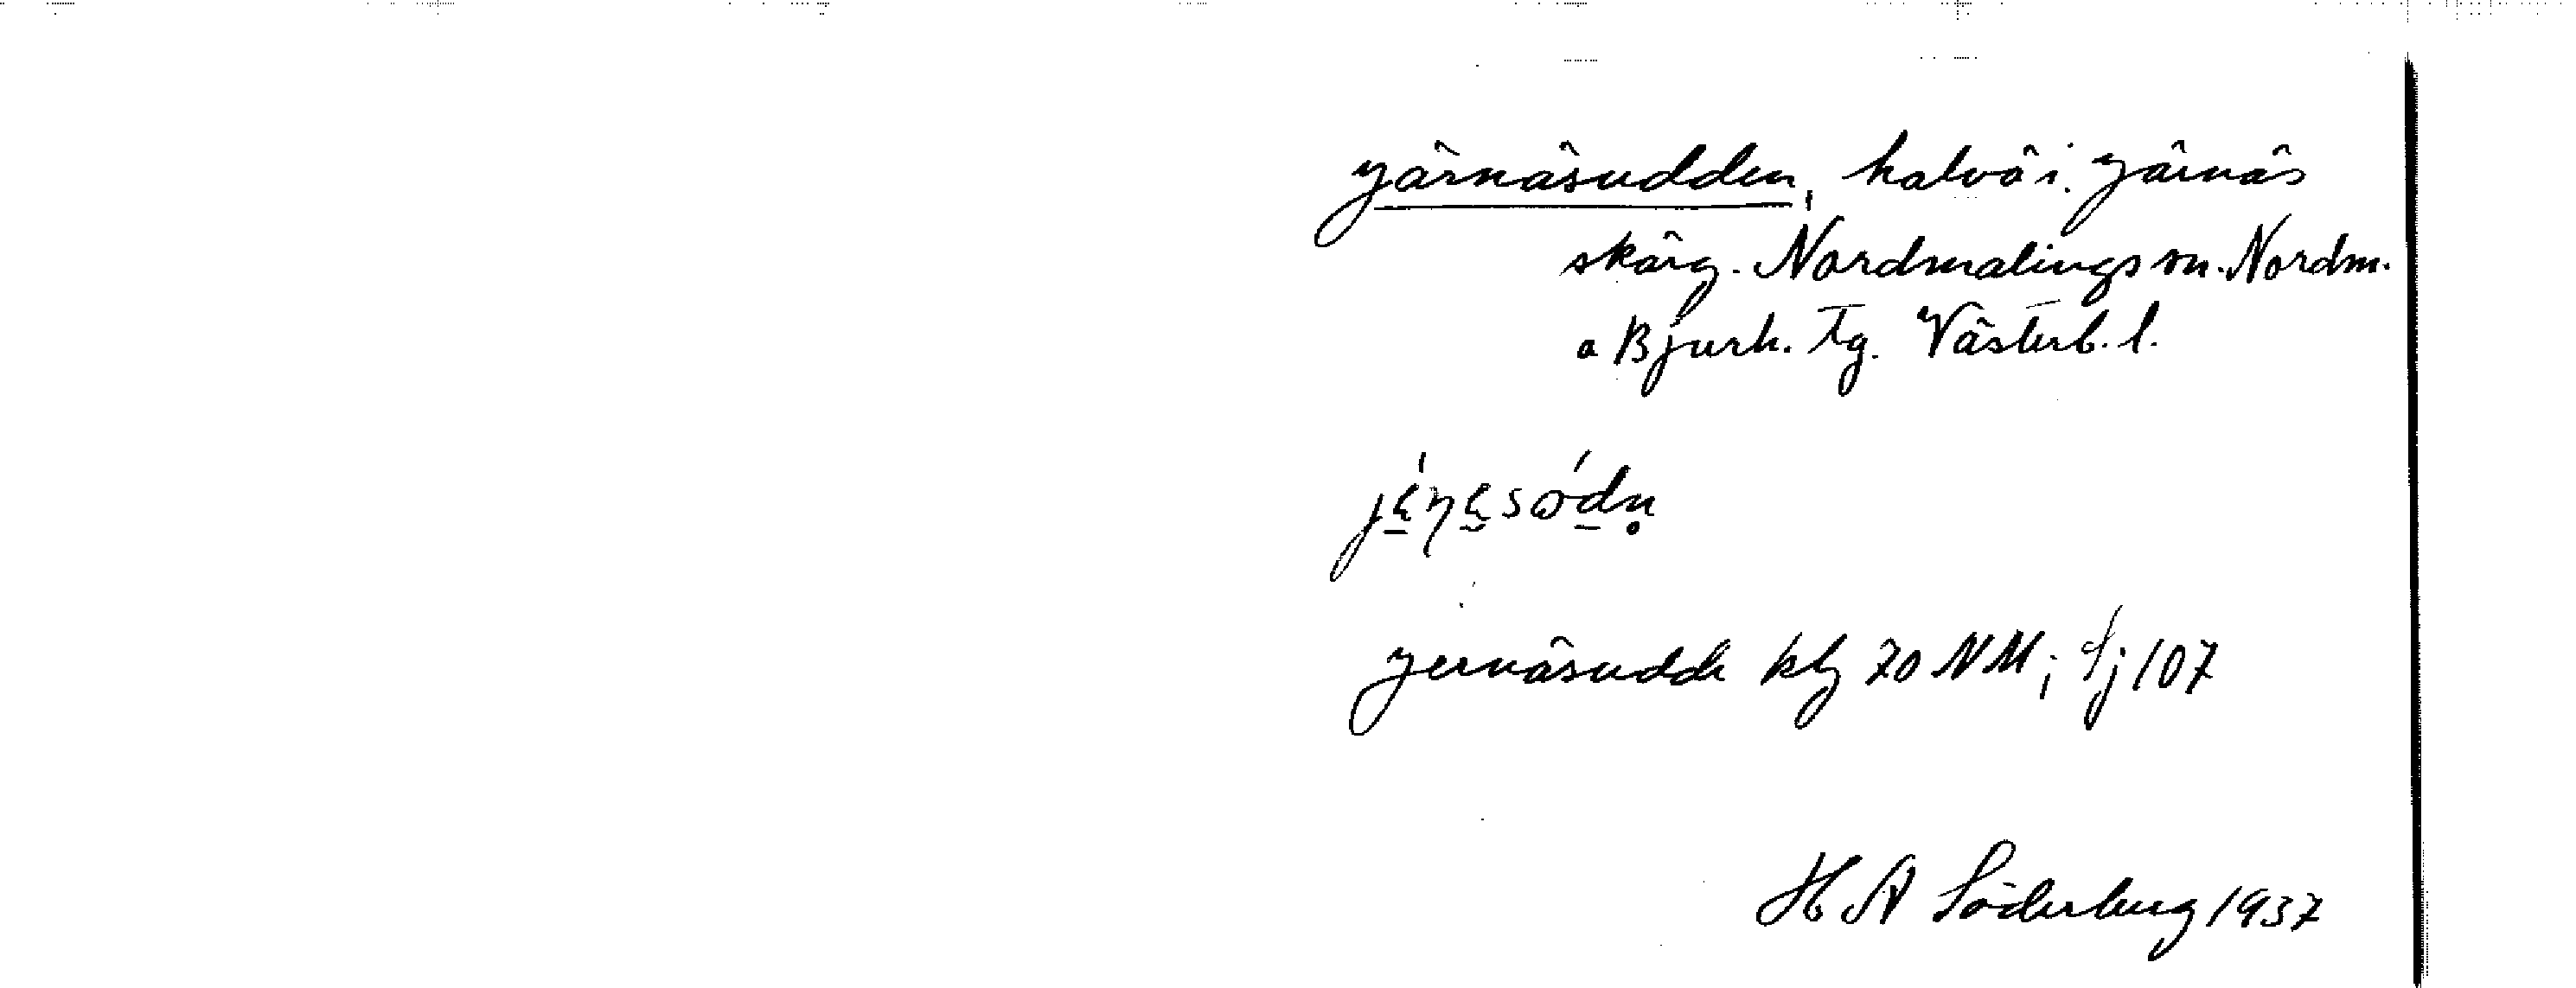 Järnäsudden, halvö i. Järnäs
skärg. Nordmalings sn. Nordm.
o Bjurh. tg. Västerb. l.
Jernäsudde kbg 70 NM; Sj 107
H A Söderberg 1937